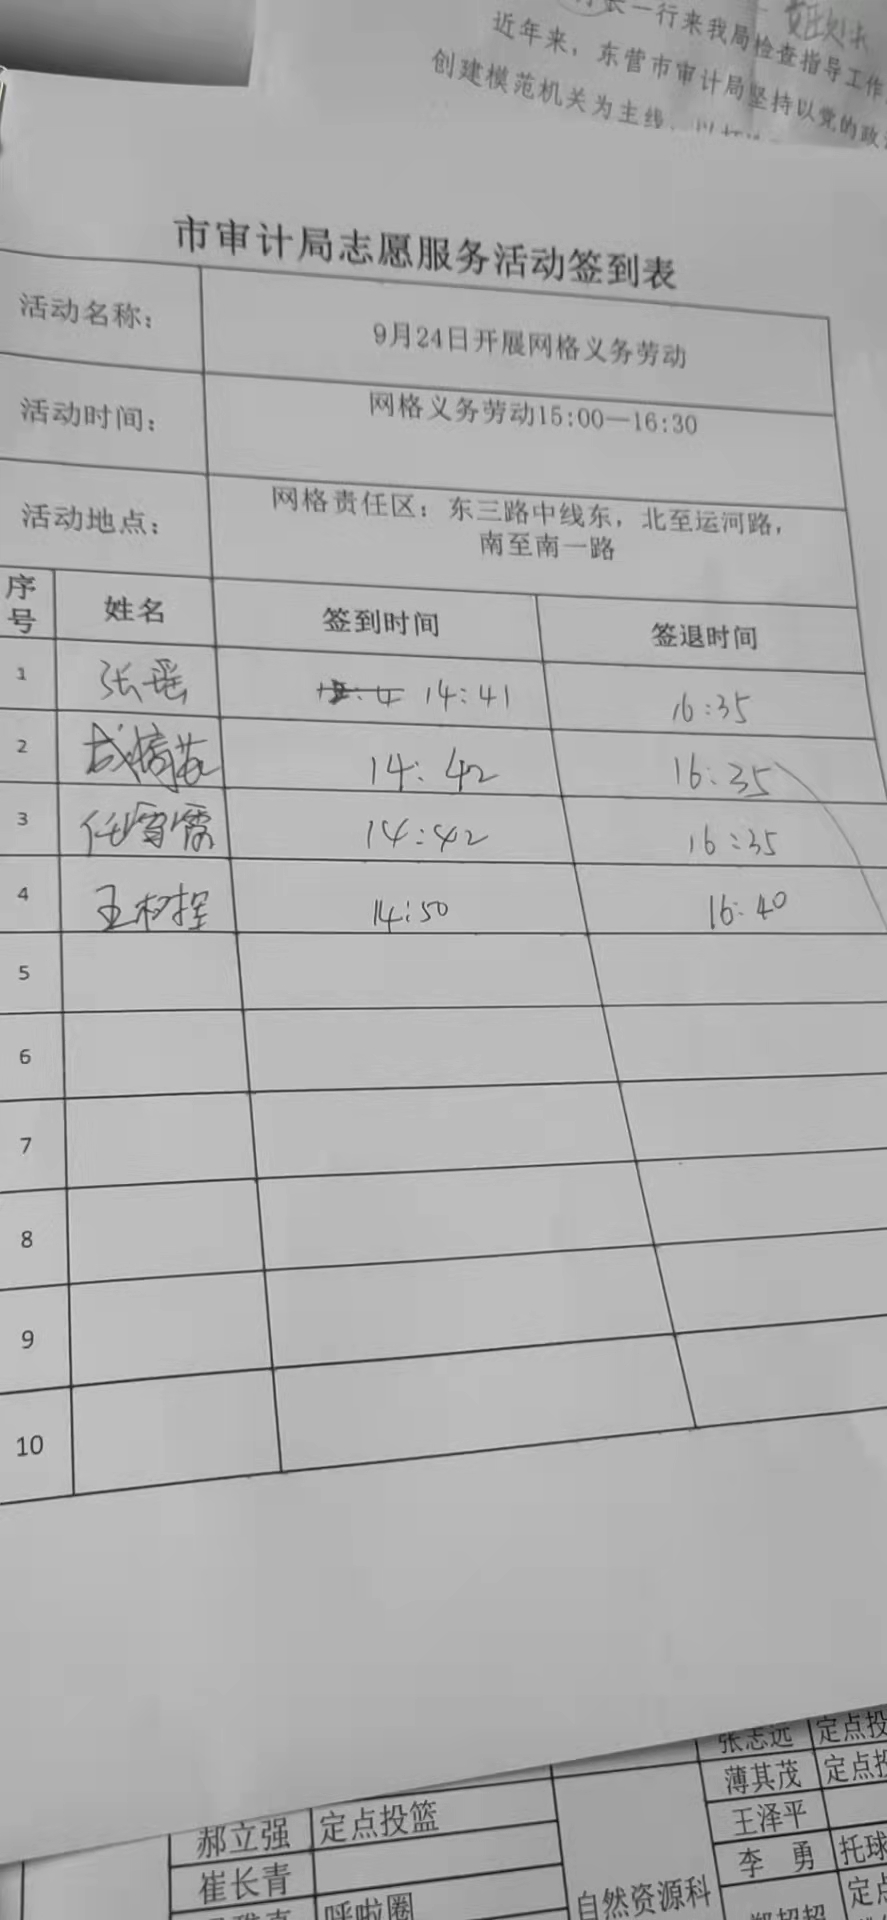 行来我局检查指导工作
近年来，东营市审计局坚持以党的政
创建模范机关为主线，以
市审计局志愿服务活动签到表
活动名称： 9月24日开展网格义务劳动
活动时间： 网格义务劳动15:00—16:30
活动地点： 网格责任区：东三路中线东，北至运河路，
南至南一路
序号 姓名 签到时间 签退时间
1 张瑶 14:41 16:35
2 14:42 16:35
3 任 14:42 16:35
4 王 14:50 16:40
5
6
7
8
9
10
张志远 定点投
薄其茂 定点投
郝立强 定点投篮 王泽平
崔长青 李 勇 托球
呼啦圈 自然资源科 定点